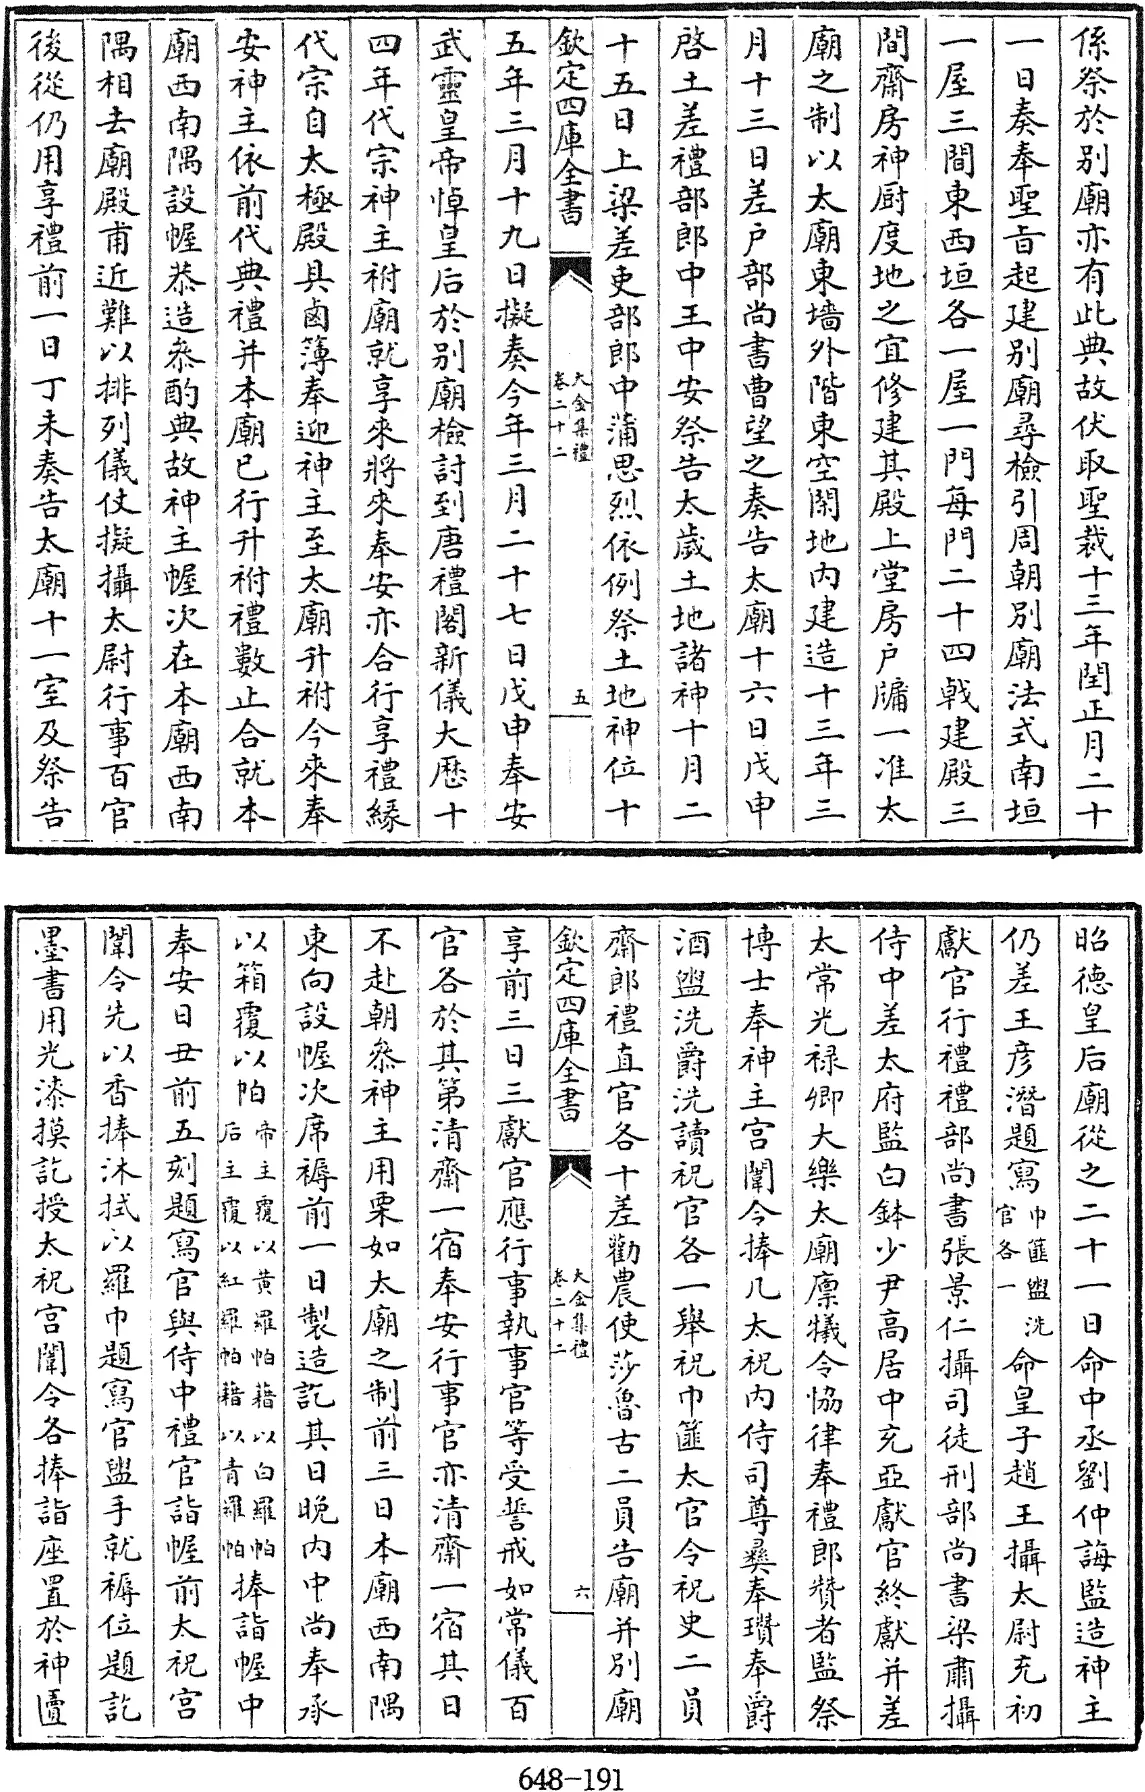 係祭於別廟亦有此典故伏取聖裁十三年閏正月二十
一日奏奉聖旨起建別廟尋檢引周朝別廟法式南垣
一屋三間東西垣各一屋一門每門二十四㦸建殿三
間齋房神厨度地之宜修建其殿上堂房戶牖一准太
廟之制以太廟東墻外階東空閑地内建造十三年三
月十三日差戶部尚書曹望之奏告太廟十六日戊申
啓土差禮部郎中王中安祭告太歲土地諸神十月二
十五日上梁差吏部郎中蒲思烈依例祭土地神位十
欽定四庫全書
大金集禮
卷二十二
五
五年三月十九日擬奏今年三月二十七日戊申奉安
武靈皇帝悼皇后於別廟檢討到唐禮閣新儀大厯十
四年代宗神主祔廟就享來將來奉安亦合行享禮緣
代宗自太極殿具鹵簿奉迎神主至太廟升祔今來奉
安神主依前代典禮并本廟已行升祔禮數止合就本
廟西南隅設幄恭造叅酌典故神主幄次在本廟西南
隅相去廟殿甫近難以排列儀仗擬攝太尉行事百官
後從仍用享禮前一日丁未奏告太廟十一室及祭告
昭德皇后廟從之二十一日命中丞劉仲誨監造神主
仍差王彦潛題寫巾篚盥洗官各一命皇子趙王攝太尉充初
獻官行禮禮部尚書張景仁攝司徒刑部尚書梁肅攝
侍中差太府監白鉢少尹高居中充亞獻官終獻并差
太常光祿卿大樂太廟廩犧令協律奉禮郎贊者監祭
博士奉神主宫闈令捧几太祝内侍司尊彞奉瓚奉爵
酒盥洗爵洗讀祝官各一舉祝巾篚太官令祝史二員
齋郎禮直官各十差勸農使莎魯古二員告廟并別廟
欽定四庫全書
大金集禮
卷二十二
六
享前三日三獻官應行事執事官等受誓戒如常儀百
官各於其第清齋一宿奉安行事官亦清齋一宿其日
不赴朝叅神主用栗如太廟之制前三日本廟西南隅
東向設幄次席褥前一日製造訖其日晚内中尚奉承
以箱覆以帕帝主覆以黄羅帕藉以白羅帕后主覆以紅羅帕藉以青羅帕捧詣幄中
奉安日丑前五刻題寫官與侍中禮官詣幄前太祝宫
闈令先以香捧沐拭以羅巾題寫官盥手就褥位題訖
墨書用光漆摸訖授太祝宫闈令各捧詣座置於神匵
648-191